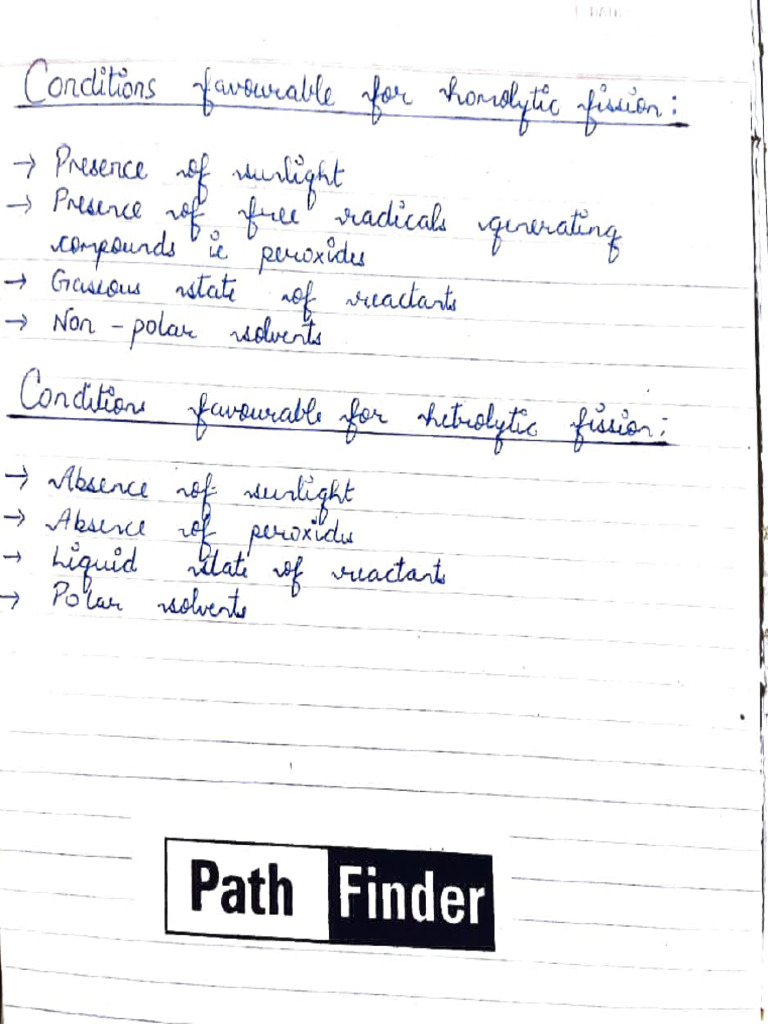 Conditions favourable for homolytic fission:
→ Presence of sunlight
→ Presence of free radicals generating
compounds ie peroxides
→ Gaseous state of reactants
→ Non-polar solvents
Conditions favourable for hetrolytic fission:
→ Absence of sunlight
→ Absence of peroxides
→ Liquid state of reactants
→ Polar solvents
Path Finder